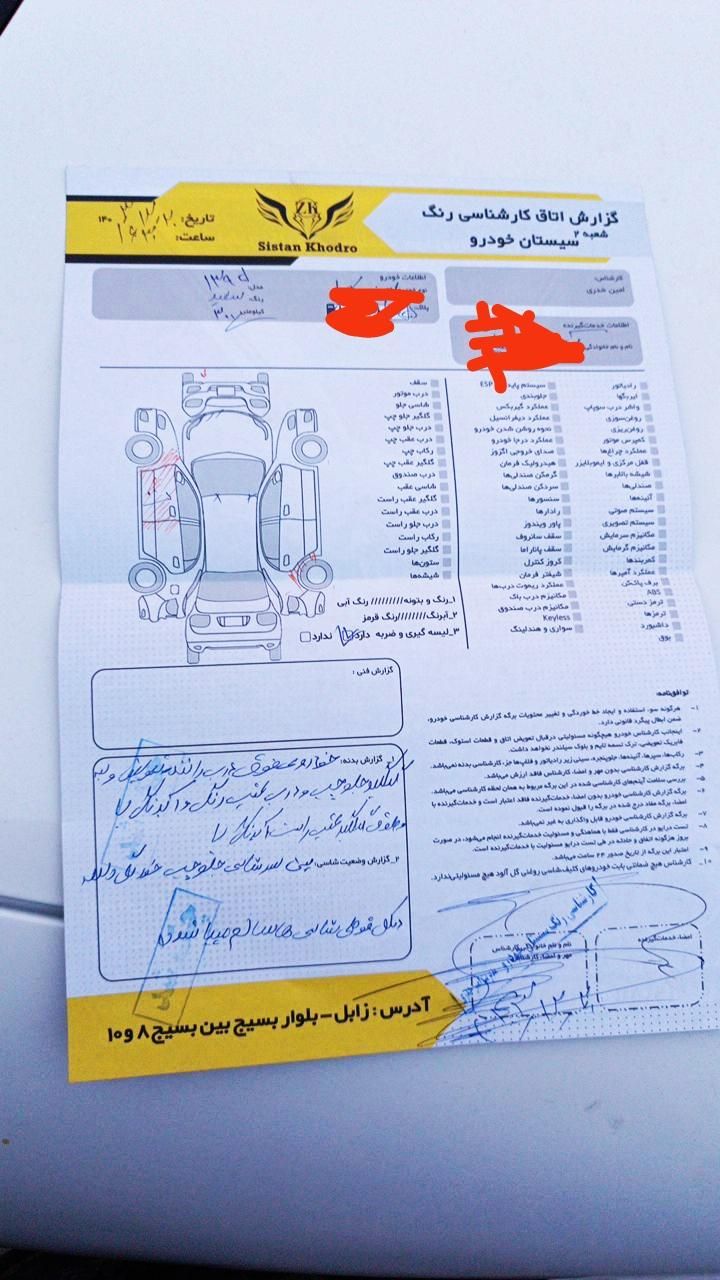 گزارش اتاق کارشناسی رنگ
شعبه ۲ سیستان خودرو
ZK
Sistan Khodro
تاریخ: ۱۴۰
ساعت:
کارشناس:
امین خدری
اطلاعات خدمات‌گیرنده
نام و نام خانوادگی
اطلاعات خودرو
پلاک:
مدل:
رنگ: سفید
کیلومتر:
رادیاتور
ایربگ‌ها
واشر درب سوپاپ
روغن‌سوزی
روغن‌ریزی
کمپرس موتور
عملکرد چراغ‌ها
قفل مرکزی و ایموبلایزر
شیشه بالابرها
صندلی‌ها
آئینه‌ها
سیستم صوتی
سیستم تصویری
مکانیزم سرمایش
مکانیزم گرمایش
کمربندها
عملکرد آمپرها
برف پاک‌کن
ABS
ترمز دستی
ترمزها
داشبورد
بوق
سیستم پایداری ESP
جلوبندی
عملکرد گیربکس
عملکرد دیفرانسیل
نحوه روشن شدن خودرو
عملکرد درجا خودرو
صدای خروجی اگزوز
هیدرولیک فرمان
گرمکن صندلی‌ها
سردکن صندلی‌ها
سنسورها
رادارها
پاور ویندوز
سقف سانروف
سقف پاناراما
کروز کنترل
شیفتر فرمان
عملکرد ریموت درب‌ها
مکانیزم درب باک
مکانیزم درب صندوق
Keyless
سواری و هندلینگ
سقف
درب موتور
شاسی جلو
گلگیر جلو چپ
درب جلو چپ
درب عقب چپ
رکاب چپ
گلگیر عقب چپ
درب صندوق
شاسی عقب
گلگیر عقب راست
درب عقب راست
درب جلو راست
رکاب راست
گلگیر جلو راست
ستون‌ها
شیشه‌ها
۱_رنگ و بتونه///////// رنگ آبی
۲_آبرنگ///////رنگ قرمز
۳_لیسه گیری و ضربه دارد ندارد
گزارش فنی:
گزارش بدنه:
گلگیر جلو چپ و درب عقب رنگ
۲_گزارش وضعیت شاسی:
توافق‌نامه:
۱- هرگونه سوء استفاده و ایجاد خط خوردگی و تغییر محتویات برگه گزارش کارشناسی خودرو،
ضمن ابطال پیگرد قانونی دارد.
۲- اینجانب کارشناس خودرو هیچگونه مسئولیتی درقبال تعویض اتاق و قطعات استوک، قطعات
فابریک تعویضی، ترک تسمه تایم و بلوک سیلندر نخواهد داشت.
۳- رکاب‌ها، سپرها، آئینه‌ها، جلوپنجره، سینی زیر رادیاتور و قالپاق‌ها جز کارشناسی بدنه نمی‌باشد.
۴- برگه گزارش کارشناسی بدون مهر و امضا، کارشناس فاقد ارزش می‌باشد.
۵- بررسی سلامت آیتم‌های کارشناسی شده در این برگه مربوط به همان لحظه کارشناسی می‌باشد.
۶- برگه گزارش کارشناسی خودرو بدون امضا، خدمات‌گیرنده فاقد اعتبار است و خدمات‌گیرنده با
امضا، برگه مفاد درج شده در برگه را قبول نموده است.
۷- برگه گزارش کارشناسی خودرو قابل واگذاری به غیر نمی‌باشد.
۸- تست درایو در کارشناسی فقط با هماهنگی و مسئولیت خدمات‌گیرنده انجام می‌شود، در صورت
بروز هرگونه اتفاق و حادثه در طی تست درایو مسئولیت با خدمات‌گیرنده است.
۹- اعتبار این برگه از تاریخ صدور ۲۴ ساعت می‌باشد.
۱۰- کارشناس هیچ ضمانتی بابت خودروهای کثیف،شاسی روغنی گل آلود هیچ مسئولیتی‌ندارد.
امضا، خدمات‌گیرنده
مهر و امضا، کارشناس
آدرس : زابل – بلوار بسیج بین بسیج ۸ و ۱۰